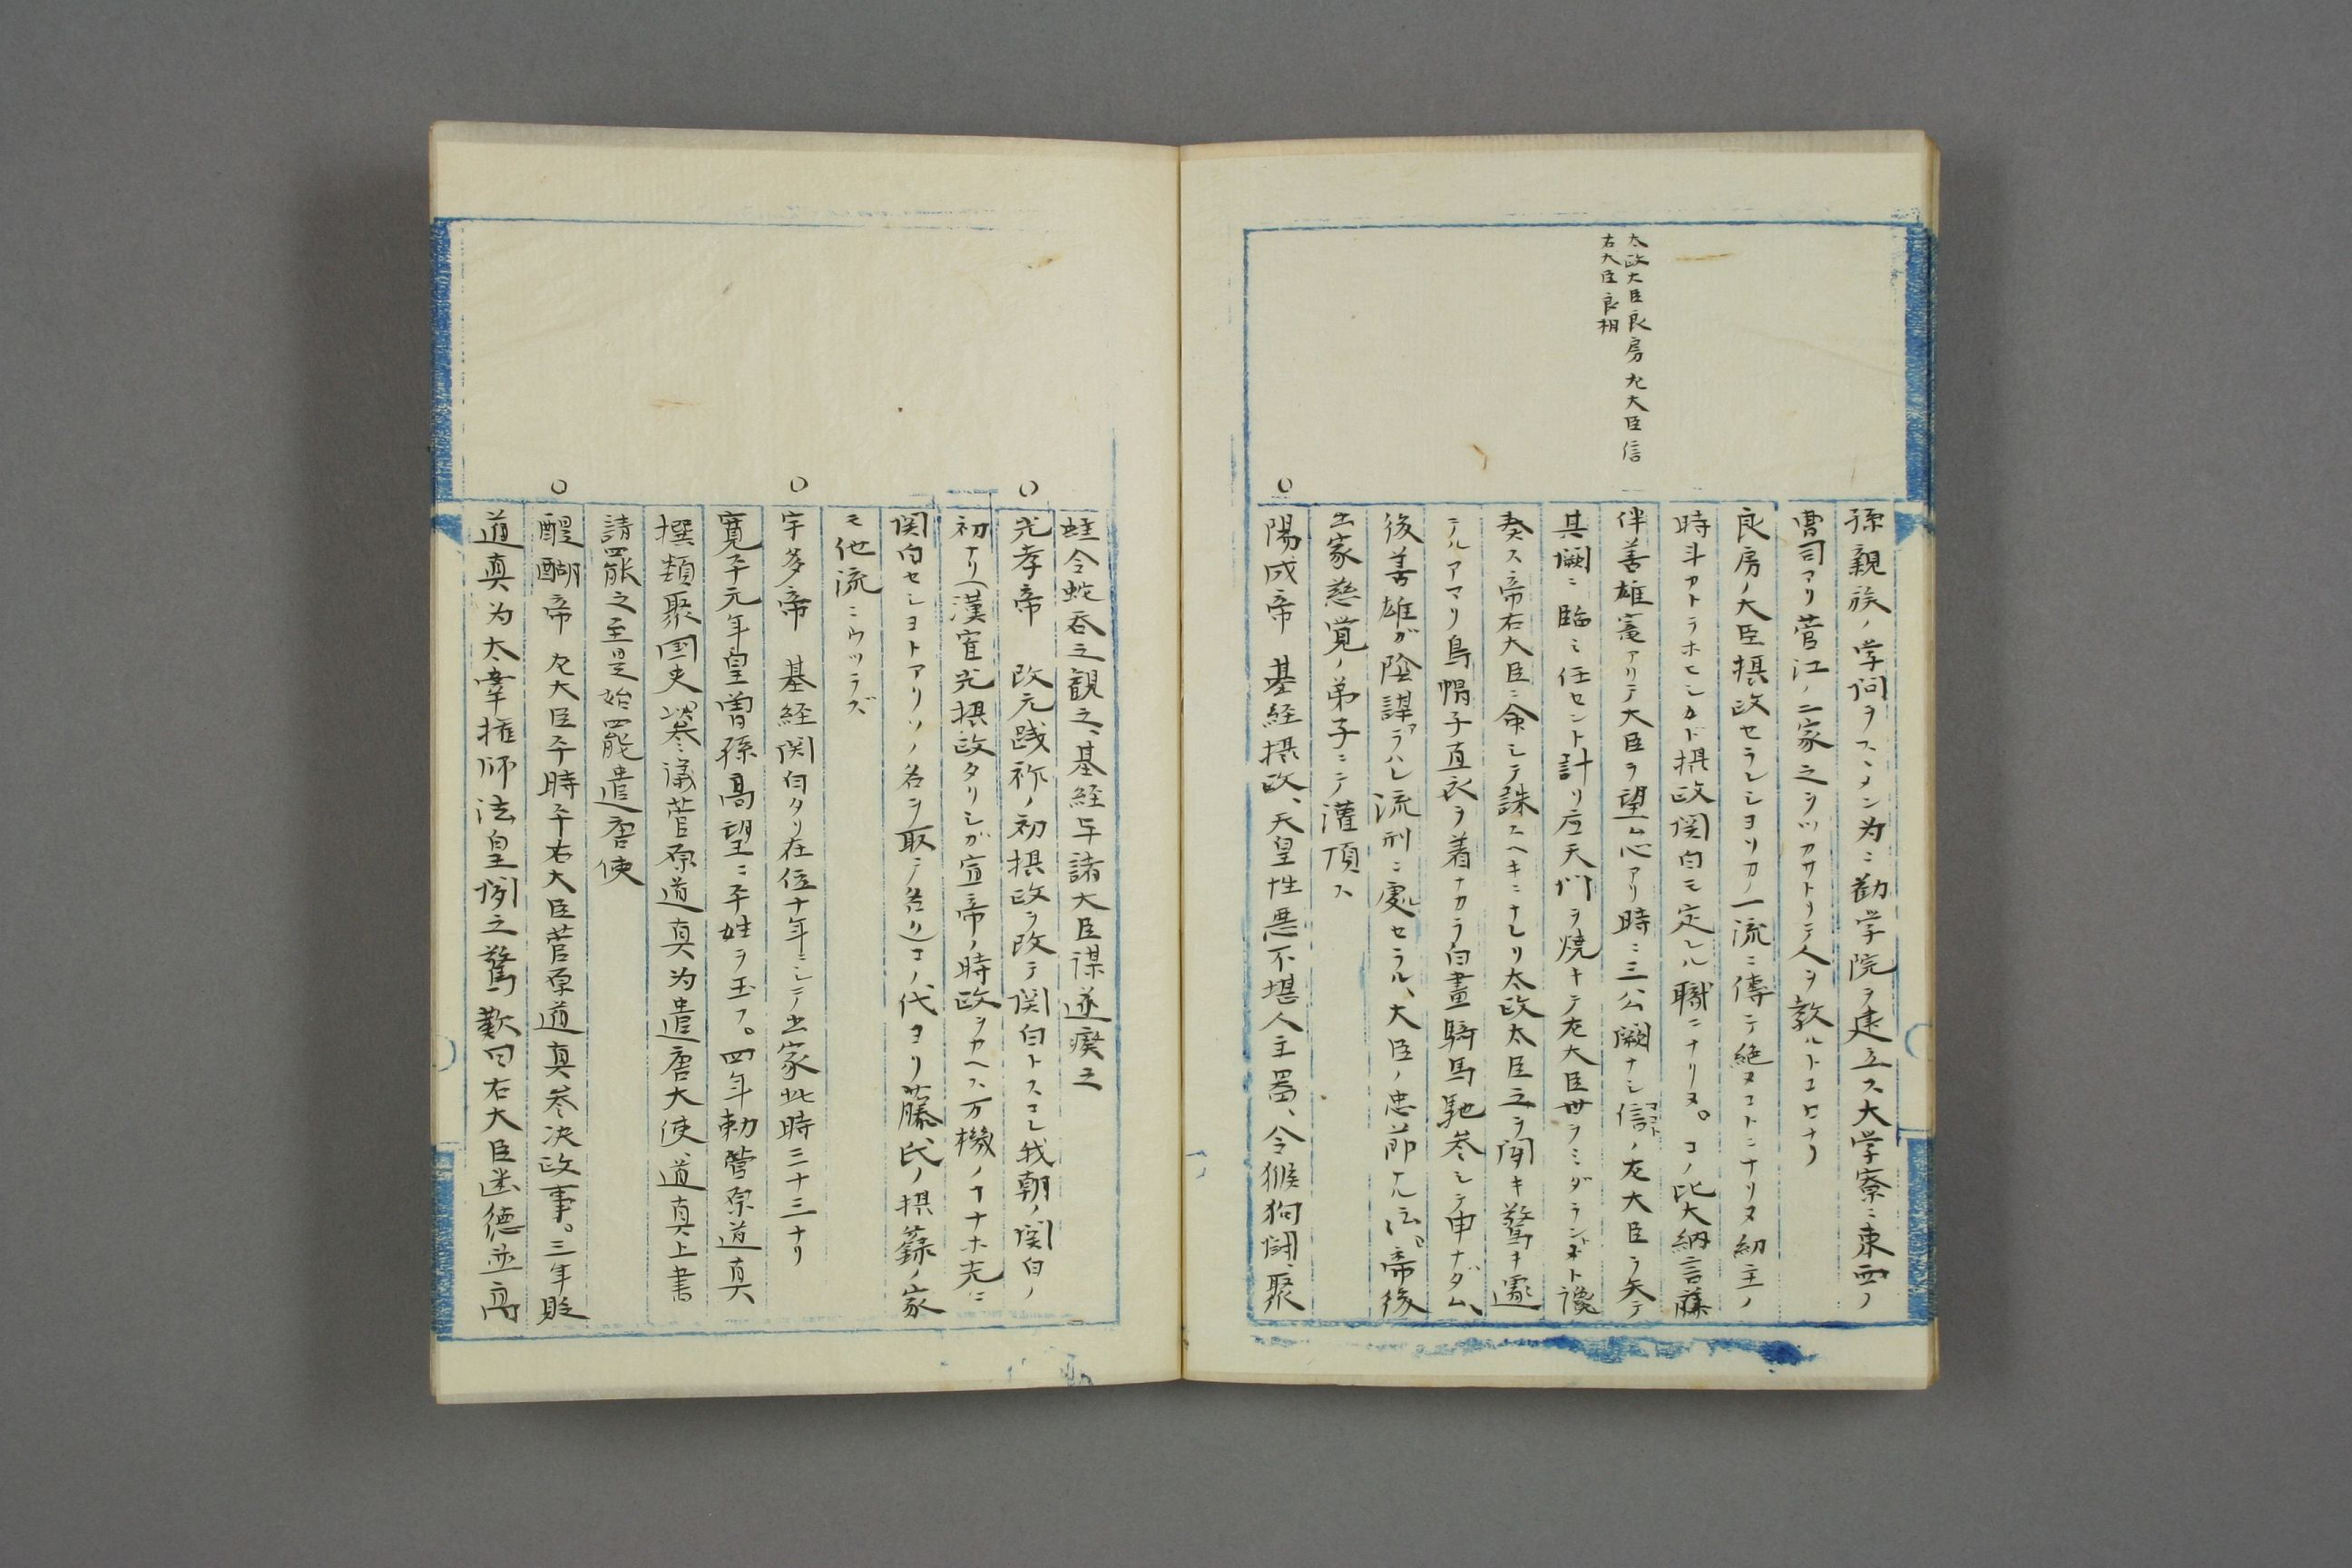 太政大臣良房 左大臣信
右大臣良相
孫親族ノ学問ヲスヽメン為ニ勧学院ヲ建立ス大学寮ニ東西ノ
曹司アリ菅江ノ二家之ヲツカサトリテ人ヲ教ルトコロナリ
良房ノ大臣摂政セラレシヨリカノ一流ニ傳テ絶ヌコトニナリヌ幼主ノ
時斗カトラホヒシカド摂政関白モ定レル職ニナリヌ。コノ比大納言藤
伴善雄寵アリテ大臣ヲ望ム心アリ時ニ三公闕ナシ信ノ左大臣ヲ失テ
其闕ニ臨ミ任セント計リ应天門ヲ焼キテ左大臣世ヲミダラントスト讒
奏ス帝右大臣ニ命シテ誅スヘキニナレリ太政太臣之ヲ聞キ驚キ遽
テルアマリ烏帽子直衣ヲ着ナカラ白晝騎馬馳参シテ申ナダム、
後善雄ガ陰謀アラハレ流刑ニ處セラル、大臣ノ忠節ナル㳒。帝後
出家慈覚ノ弟子ニテ灌頂ス
○陽成帝 基経摂政、天皇性悪不堪人主噐、令猴狗闘、聚
蛙令蛇呑之観之、基経与諸大臣謀遂癈之
○光孝帝 改元践祚ノ初摂政ヲ改テ関白トスコレ我朝ノ関白ノ
初ナリ(漢霍光摂政タリシガ宣帝ノ時政ヲカヘス万機ノナナホ光ニ
関白セシヨトアリソノ名ヲ取テ名リ)コノ代ヨリ藤氏ノ摂籙ノ家
モ他流ニウツラズ
○宇多帝 基経関白タリ在位十年ニシテ出家此時三十三ナリ
寛平元年皇曽孫高望ニ平姓ヲ玉フ。四年勅菅原道真
撰類聚国史以参議菅原道真为遣唐大使、道真上書
請罷之至是始罷遣唐使
○醍醐帝 左大臣平時平右大臣菅原道真参决政事。三年貶
道真为太宰権師法皇聞之驚歎曰右大臣幽徳並高